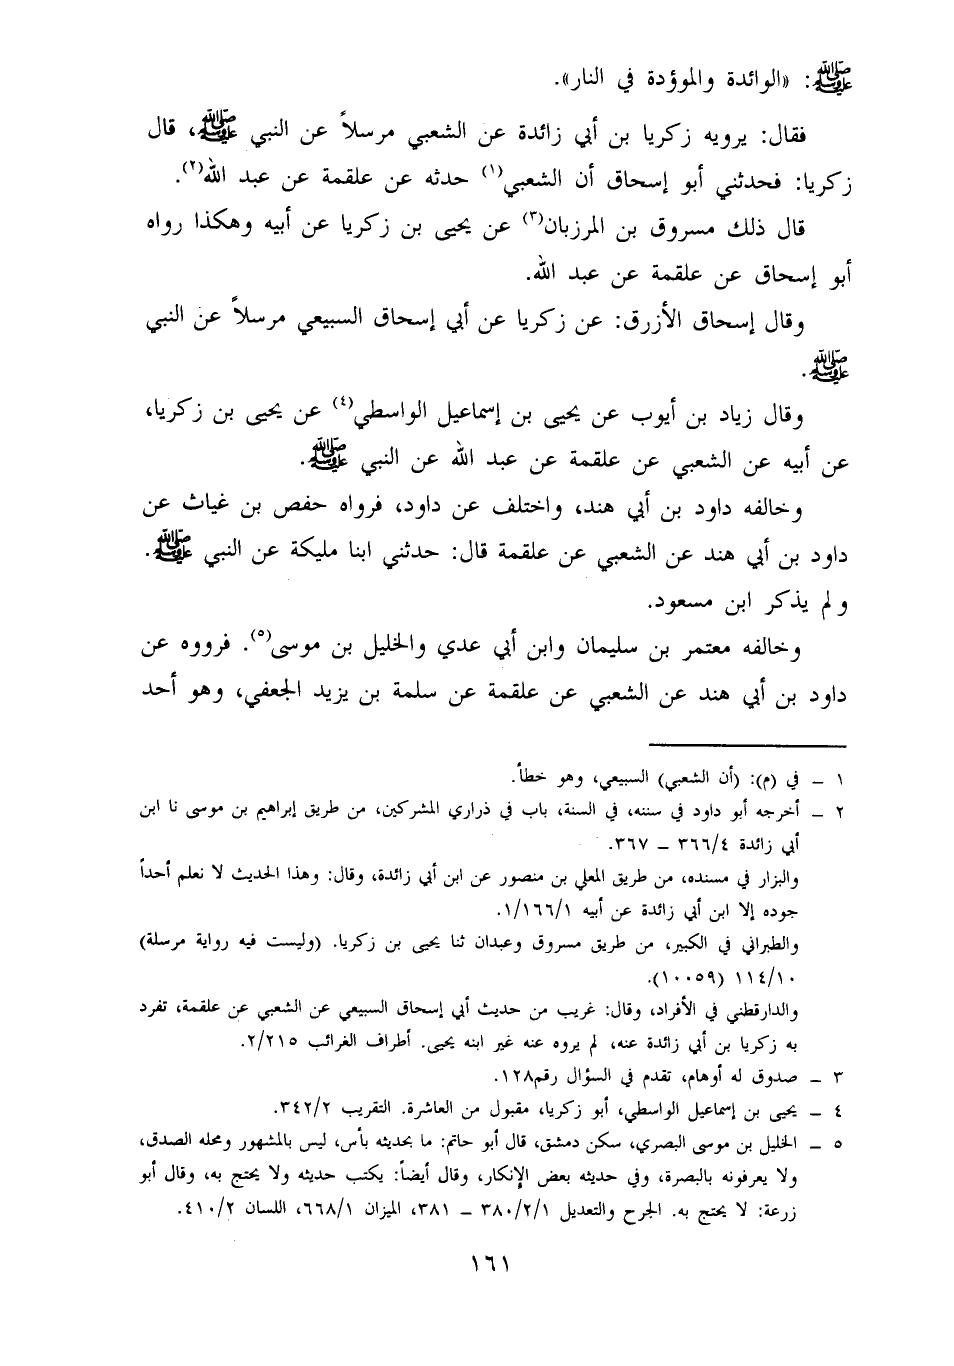 ﷺ: «الوائدة والموؤدة في النار».
فقال: يرويه زكريا بن أبي زائدة عن الشعبي مرسلاً عن النبي ﷺ، قال
زكريا: فحدثني أبو إسحاق أن الشعبي(١) حدثه عن علقمة عن عبد الله(٢).
قال ذلك مسروق بن المرزبان(٣) عن يحيى بن زكريا عن أبيه وهكذا رواه
أبو إسحاق عن علقمة عن عبد الله.
وقال إسحاق الأزرق: عن زكريا عن أبي إسحاق السبيعي مرسلاً عن النبي
ﷺ.
وقال زياد بن أيوب عن يحيى بن إسماعيل الواسطي(٤) عن يحيى بن زكريا،
عن أبيه عن الشعبي عن علقمة عن عبد الله عن النبي ﷺ.
وخالفه داود بن أبي هند، واختلف عن داود، فرواه حفص بن غياث عن
داود بن أبي هند عن الشعبي عن علقمة قال: حدثني ابنا مليكة عن النبي ﷺ.
ولم يذكر ابن مسعود.
وخالفه معتمر بن سليمان وابن أبي عدي والخليل بن موسى(٥). فرووه عن
داود بن أبي هند عن الشعبي عن علقمة عن سلمة بن يزيد الجعفي، وهو أحد
١ – في (م): (أن الشعبي) السبيعي، وهو خطأ.
٢ – أخرجه أبو داود في سننه، في السنة، باب في ذراري المشركين، من طريق إبراهيم بن موسى نا ابن
أبي زائدة ٣٦٦/٤ – ٣٦٧.
والبزار في مسنده، من طريق المعلي بن منصور عن ابن أبي زائدة، وقال: وهذا الحديث لا نعلم أحداً
جوده إلا ابن أبي زائدة عن أبيه ١/١٦٦/١.
والطبراني في الكبير، من طريق مسروق وعبدان ثنا يحيى بن زكريا. (وليست فيه رواية مرسلة)
١١٤/١٠ (١٠٠٥٩).
والدارقطني في الأفراد، وقال: غريب من حديث أبي إسحاق السبيعي عن الشعبي عن علقمة، تفرد
به زكريا بن أبي زائدة عنه، لم يروه عنه غير ابنه يحيى. أطراف الغرائب ٢/٢١٥.
٣ – صدوق له أوهام، تقدم في السؤال رقم١٢٨.
٤ – يحيى بن إسماعيل الواسطي، أبو زكريا، مقبول من العاشرة. التقريب ٣٤٢/٢.
٥ – الخليل بن موسى البصري، سكن دمشق، قال أبو حاتم: ما بحديثه بأس، ليس بالمشهور ومحله الصدق،
ولا يعرفونه بالبصرة، وفي حديثه بعض الإنكار، وقال أيضاً: يكتب حديثه ولا يحتج به، وقال أبو
زرعة: لا يحتج به. الجرح والتعديل ٣٨٠/٢/١ – ٣٨١، الميزان ٦٦٨/١، اللسان ٤١٠/٢.
١٦١